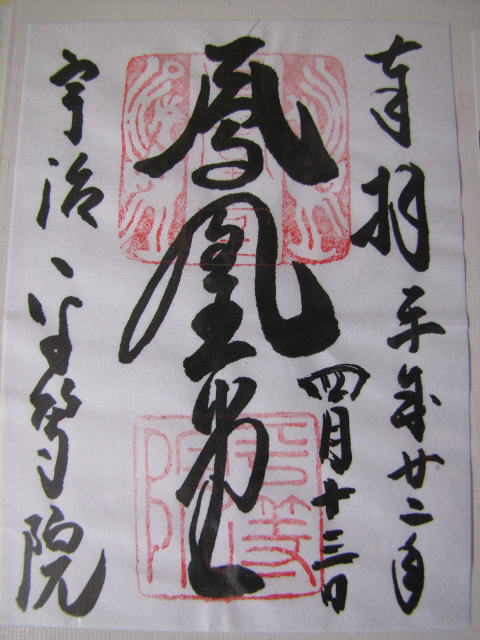 奉拝 平成廿二年
四月十三日
鳳凰堂
宇治 平等院
平等院